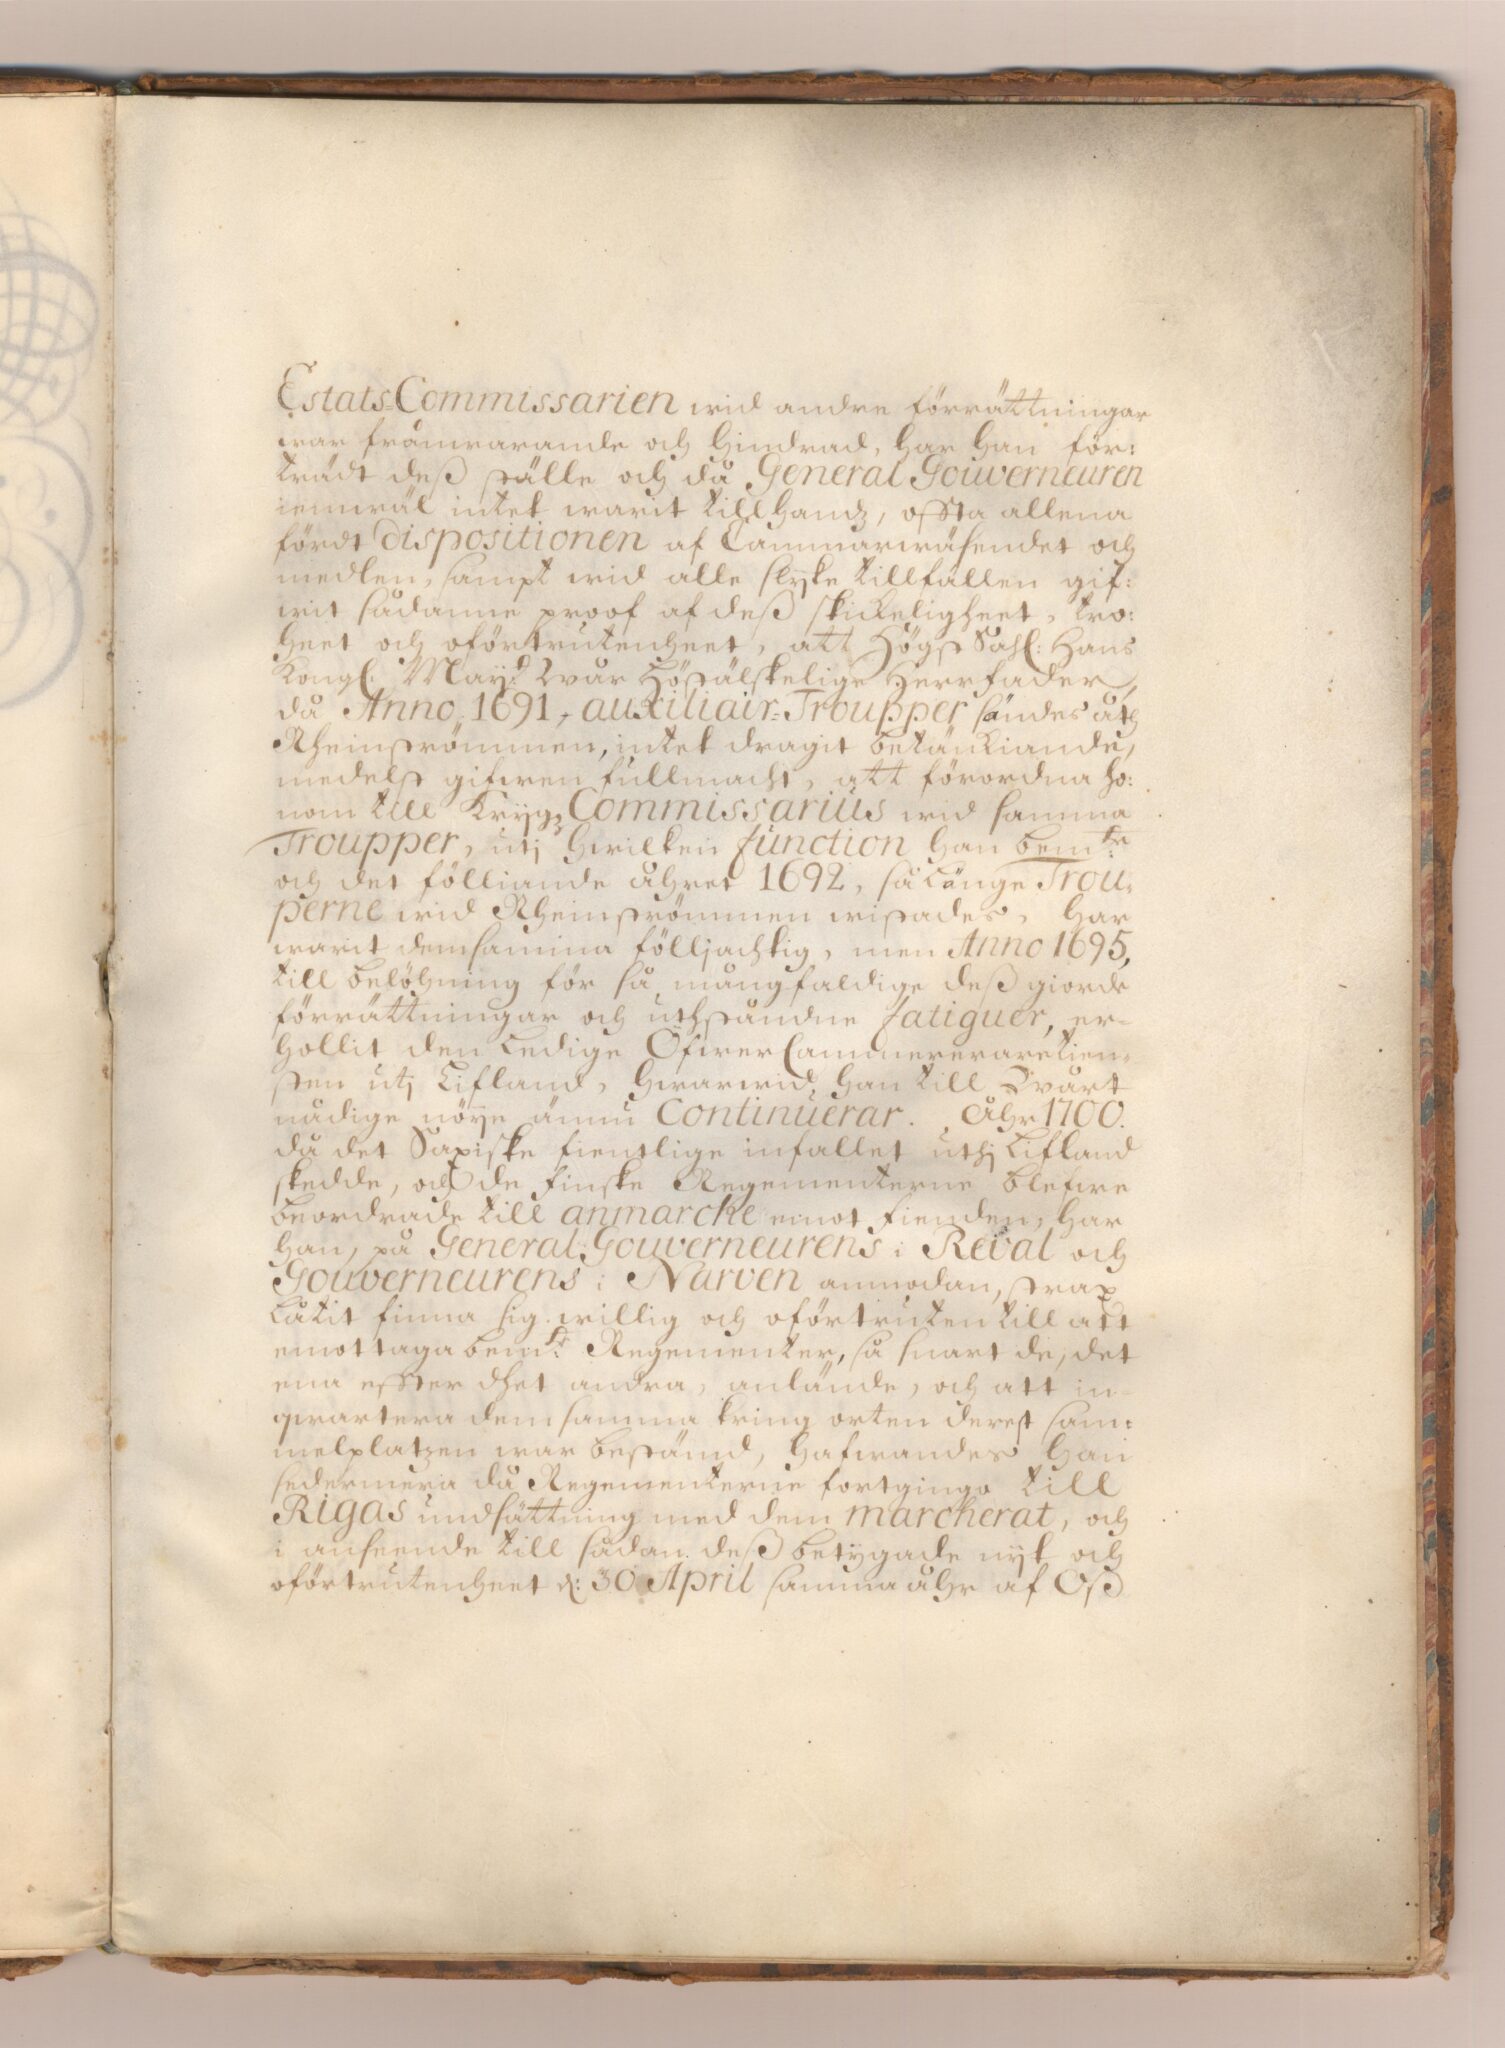 Estats-Commissarien wid andre förrättningar
war frånwarande och hindrad, har han för:
trädt deß ställe och då General Gouverneuren
iemwäl intet warit tillhandz, offta allena
fördt dispositionen af Cammarwäsendet och
medlen, sampt wid alle slijke tillfällen gif:
wit sådanne proof af deß skickeligheet, tro:
heet och oförtrutenheet, att Högst Sahl: Hans
Kongl: Maij:t Wår Högstälskelige Herr fader,
då Anno 1691, auxiliair-Troupper sändes åth
Rheinströmmen, intet dragit betänkiande,
medelst gifwen fullmacht, att förordna ho:
nom till Krijgz Commissarius wid samma
Troupper, utj hwilken function han bem:te
och det fölliande åhret 1692, så länge Trou:
perne wid Rheinströmmen wistades, har
warit dem samma fölljachtig, men Anno 1695,
till belöhning för så mångfaldige deß giorde
förrättningar och uthståndne fatiguer, er-
hollit den ledige Öfwer Cammererare tien-
sten utj Lifland, hwarwid han till Wårt
nådige nöije ännu Continuerar. Åhr 1700.
då det Saxiske fientlige infallet uthj Lifland
skedde, och de finske Regementerne blefwe
beordrade till anmarche emot fienden, har
han, på General-Gouverneurens i Reval och
Gouverneurens i Narven anmodan, strax
låtit finna sig willig och oförtruten till att
emottaga bem:te Regementer, så snart de, det
ena effter dhet andra, anlände, och att in-
qwartera dem samma kring orten derest sam:
melplatzen war bestämd, hafwandes han
sedermera då Regementerne fortgingo till
Rigas undsättning med dem marcherat, och
i anseende till sådan deß betygade nijt och
oförtrutenheet d: 30 April samma åhr af Oß